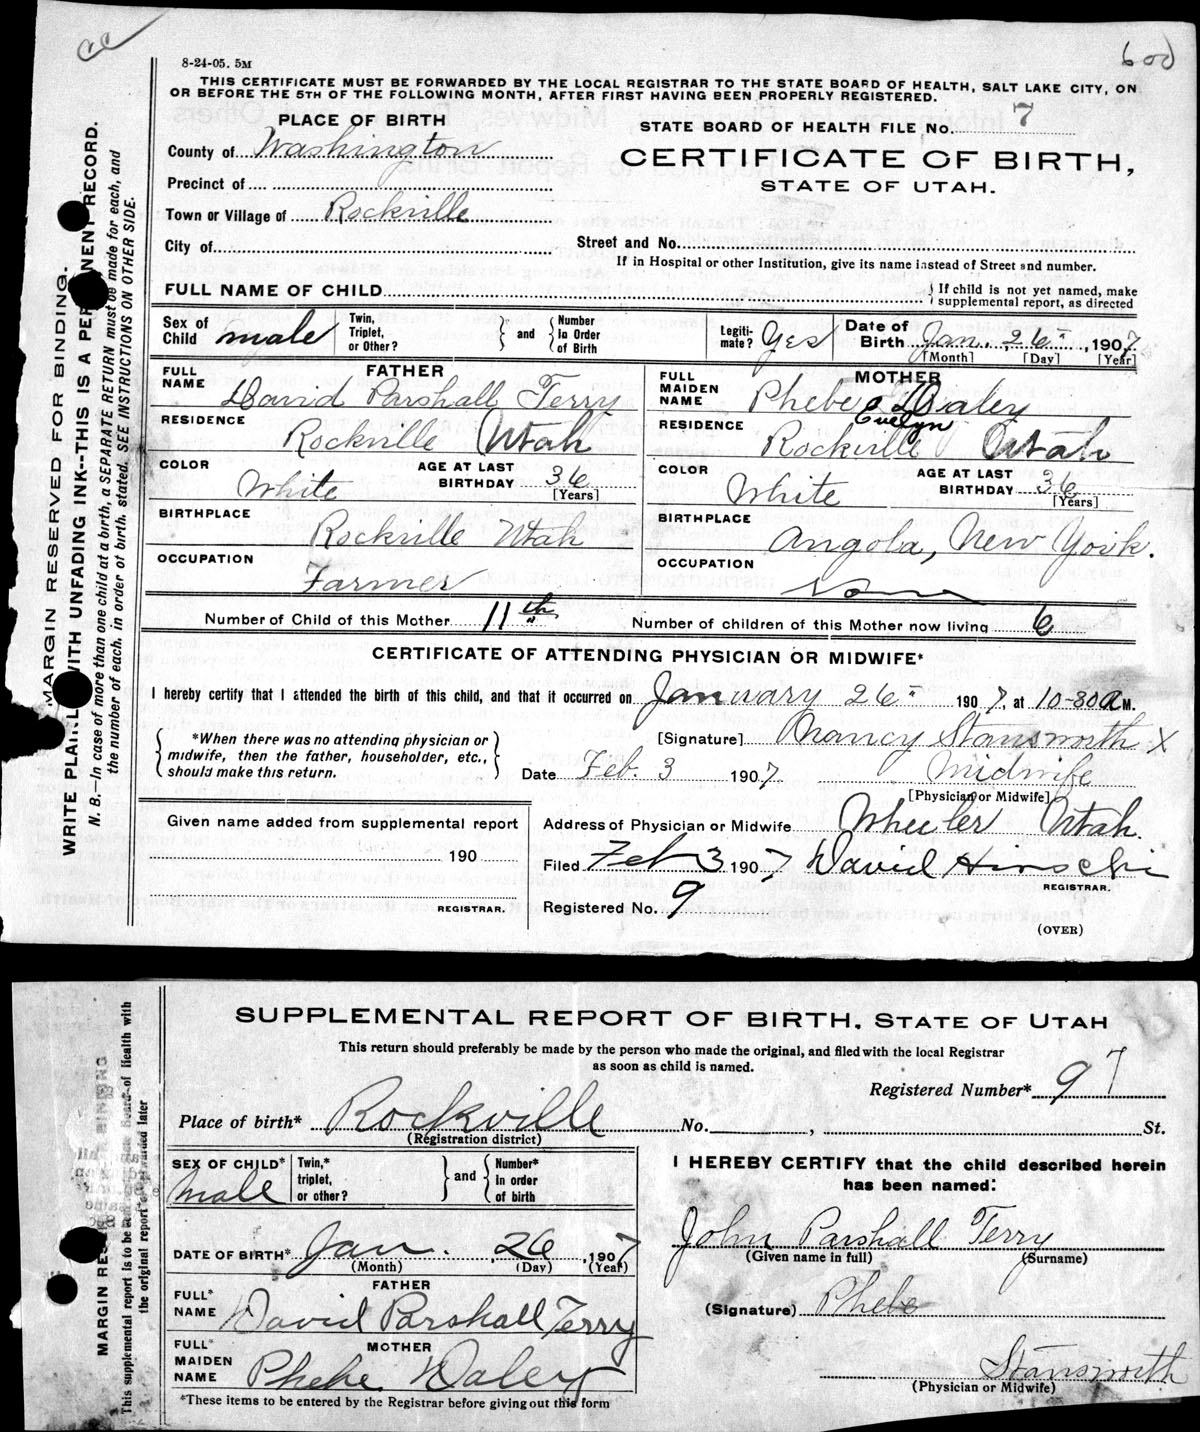 cc
600
8-24-05. 5M
THIS CERTIFICATE MUST BE FORWARDED BY THE LOCAL REGISTRAR TO THE STATE BOARD OF HEALTH, SALT LAKE CITY, ON
OR BEFORE THE 5TH OF THE FOLLOWING MONTH, AFTER FIRST HAVING BEEN PROPERLY REGISTERED.
PLACE OF BIRTH
STATE BOARD OF HEALTH FILE No. 7
County of Washington
CERTIFICATE OF BIRTH,
Precinct of
STATE OF UTAH.
Town or Village of Rockville
City of
Street and No.
If in Hospital or other Institution, give its name instead of Street and number.
FULL NAME OF CHILD
If child is not yet named, make
supplemental report, as directed
Sex of Child male
Twin, Triplet, or Other?
and
Number In Order of Birth
Legiti-mate? Yes
Date of Birth Jan. 26, 1907
[Month] [Day] [Year]
FATHER
FULL NAME David Parshall Terry
RESIDENCE Rockville Utah
COLOR White
AGE AT LAST BIRTHDAY 36 [Years]
BIRTHPLACE Rockville Utah
OCCUPATION Farmer
MOTHER
FULL MAIDEN NAME Phebe Daley
Evelyn
RESIDENCE Rockville Utah
COLOR White
AGE AT LAST BIRTHDAY 36 [Years]
BIRTHPLACE Angola, New York.
OCCUPATION
Number of Child of this Mother 11th
Number of children of this Mother now living 6
CERTIFICATE OF ATTENDING PHYSICIAN OR MIDWIFE*
I hereby certify that I attended the birth of this child, and that it occurred on January 26" 1907, at 10-30 A M.
*When there was no attending physician or
midwife, then the father, householder, etc.,
should make this return.
[Signature] Nancy Stansworth X
Date Feb. 3 1907, Midwife
[Physician or Midwife]
Given name added from supplemental report
190
REGISTRAR.
Address of Physician or Midwife Wheeler Utah.
Filed Feb 3 1907 David Hirschi
REGISTRAR.
Registered No. 9
(OVER)
MARGIN RESERVED FOR BINDING.
WRITE PLAINLY WITH UNFADING INK--THIS IS A PERMANENT RECORD.
N. B.—In case of more than one child at a birth, a SEPARATE RETURN must be made for each, and
the number of each, in order of birth, stated. SEE INSTRUCTIONS ON OTHER SIDE.
SUPPLEMENTAL REPORT OF BIRTH, STATE OF UTAH
This return should preferably be made by the person who made the original, and filed with the local Registrar
as soon as child is named.
Registered Number* 9 7
Place of birth* Rockville No. , St.
(Registration district)
SEX OF CHILD* Male
Twin,* triplet, or other?
and
Number* In order of birth
DATE OF BIRTH* Jan. 26, 1907
(Month) (Day) (Year)
FATHER
FULL* NAME David Parshall Terry
MOTHER
FULL* MAIDEN NAME Phebe Daley
*These items to be entered by the Registrar before giving out this form
I HEREBY CERTIFY that the child described herein
has been named:
John Parshall Terry
(Given name in full) (Surname)
(Signature) Phebe
Stansworth
(Physician or Midwife)
This supplemental report is to be
the original report